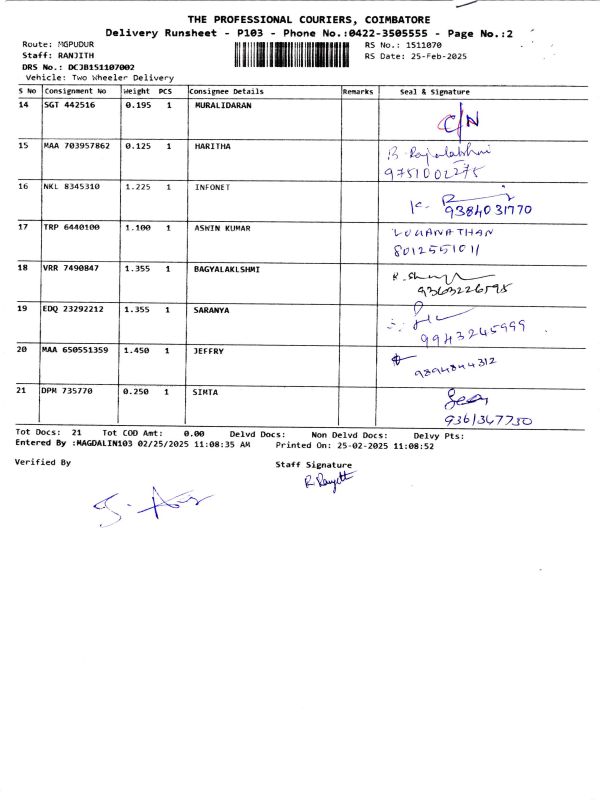 THE PROFESSIONAL COURIERS, COIMBATORE
Delivery Runsheet - P103 - Phone No.:0422-3505555 - Page No.:2
Route: MGPUDUR RS No.: 1511070
Staff: RANJITH RS Date: 25-Feb-2025
DRS No.: DCJB151107002
Vehicle: Two Wheeler Delivery
S No Consignment No Weight PCS Consignee Details Remarks Seal & Signature
14 SGT 442516 0.195 1 MURALIDARAN C/N
15 MAA 703957862 0.125 1 HARITHA B. Rajalakshmi
9751002275
16 NKL 8345310 1.225 1 INFONET K.
9384031770
17 TRP 6440100 1.100 1 ASWIN KUMAR LOGANATHAN
8012551011
18 VRR 7490847 1.355 1 BAGYALAKLSHMI
9363226595
19 EDQ 23292212 1.355 1 SARANYA
9943245999
20 MAA 650551359 1.450 1 JEFFRY
9894844312
21 DPM 735770 0.250 1 SIMTA
9361347750
Tot Docs: 21 Tot COD Amt: 0.00 Delvd Docs: Non Delvd Docs: Delvy Pts:
Entered By :MAGDALIN103 02/25/2025 11:08:35 AM Printed On: 25-02-2025 11:08:52
Verified By Staff Signature